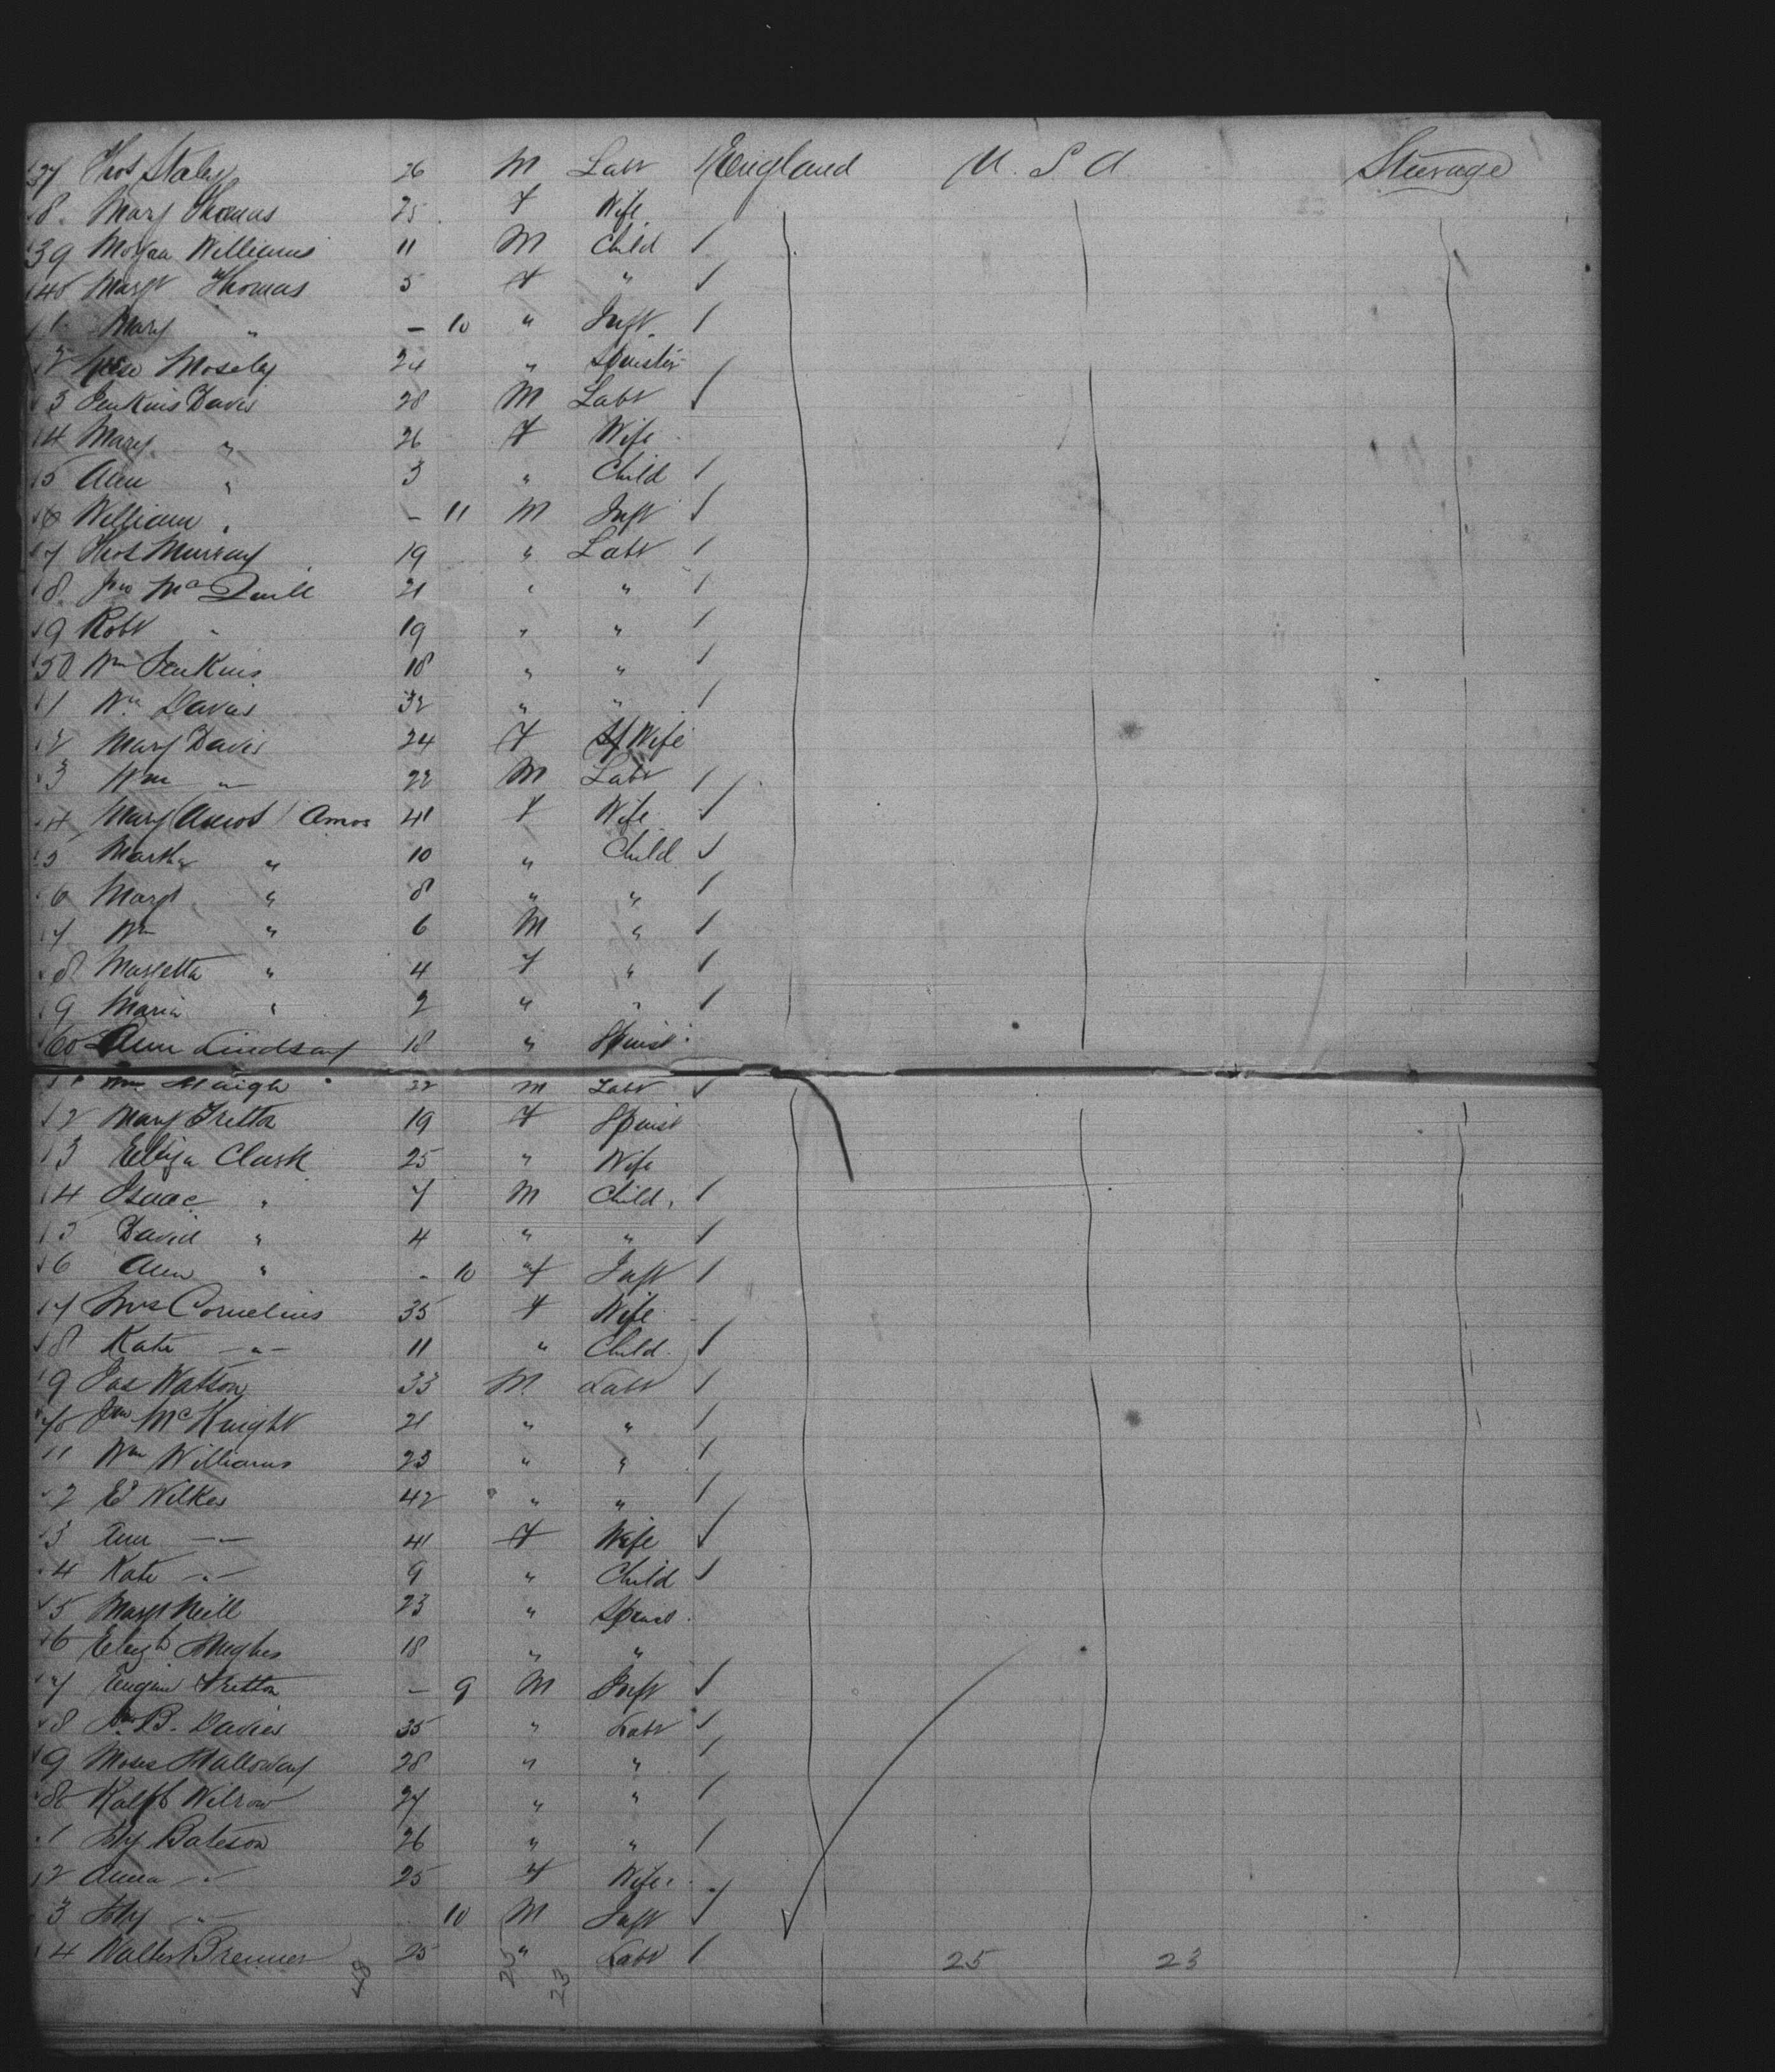 37 Thos Staley 26 M Labr England U.S.A Steerage
8 Mary Thomas 25 F Wife
39 Morgan Williams 11 M Child
40 Margt Thomas 5 F "
1 Mary " - 10 " Inft
2 Mosely 24 " Spinster
3 Jenkins Davis 28 M Labr
4 Mary " 26 F Wife
5 Ann " 3 " Child
6 William " - 11 M Inft
7 Thos Murray 19 " Labr
8 Jno 21 " "
9 Robt " 19 " "
50 Wm Jenkins 18 " "
1 Wm Davis 32 " "
2 Mary Davis 24 F Wife
3 Wm " 22 M Labr
4 Mary (Amos) Amos 41 F Wife
5 Martha " 10 " Child
6 Margt " 8 " "
7 Wm " 6 M "
8 Margetta " 4 F "
9 Maria " 2 " "
60 Ann Lindsay 18 " Spinst
1 Wm Haigh 22 M Labr
2 Mary Tretton 19 F Spinst
3 Eliza Clark 25 " Wife
4 Isaac " 7 M Child
5 David " 4 " "
6 Ann " - 10 F Inft
7 Mrs Cornelius 35 F Wife
8 Kate " 11 " Child
9 Jas Watson 33 M Labr
70 Jno McKnight 21 " "
1 Wm Williams 23 " "
2 Ed Wilkes 42 " "
3 Ann " 41 F Wife
4 Kate " 9 " Child
5 Margt Neill 23 " Spinst
6 Elizth Hughes 18 " "
7 Eugine Tretton - 9 M Inft
8 B. Davies 35 " Labr
9 Moses Halloway 28 " "
80 Ralph Wilson 27 " "
1 Hy Bateson 26 " "
2 Anna " 25 F Wife
3 Hy " 10 M Inft
4 Walter Brenner 25 " Labr 25 23
48 25 23